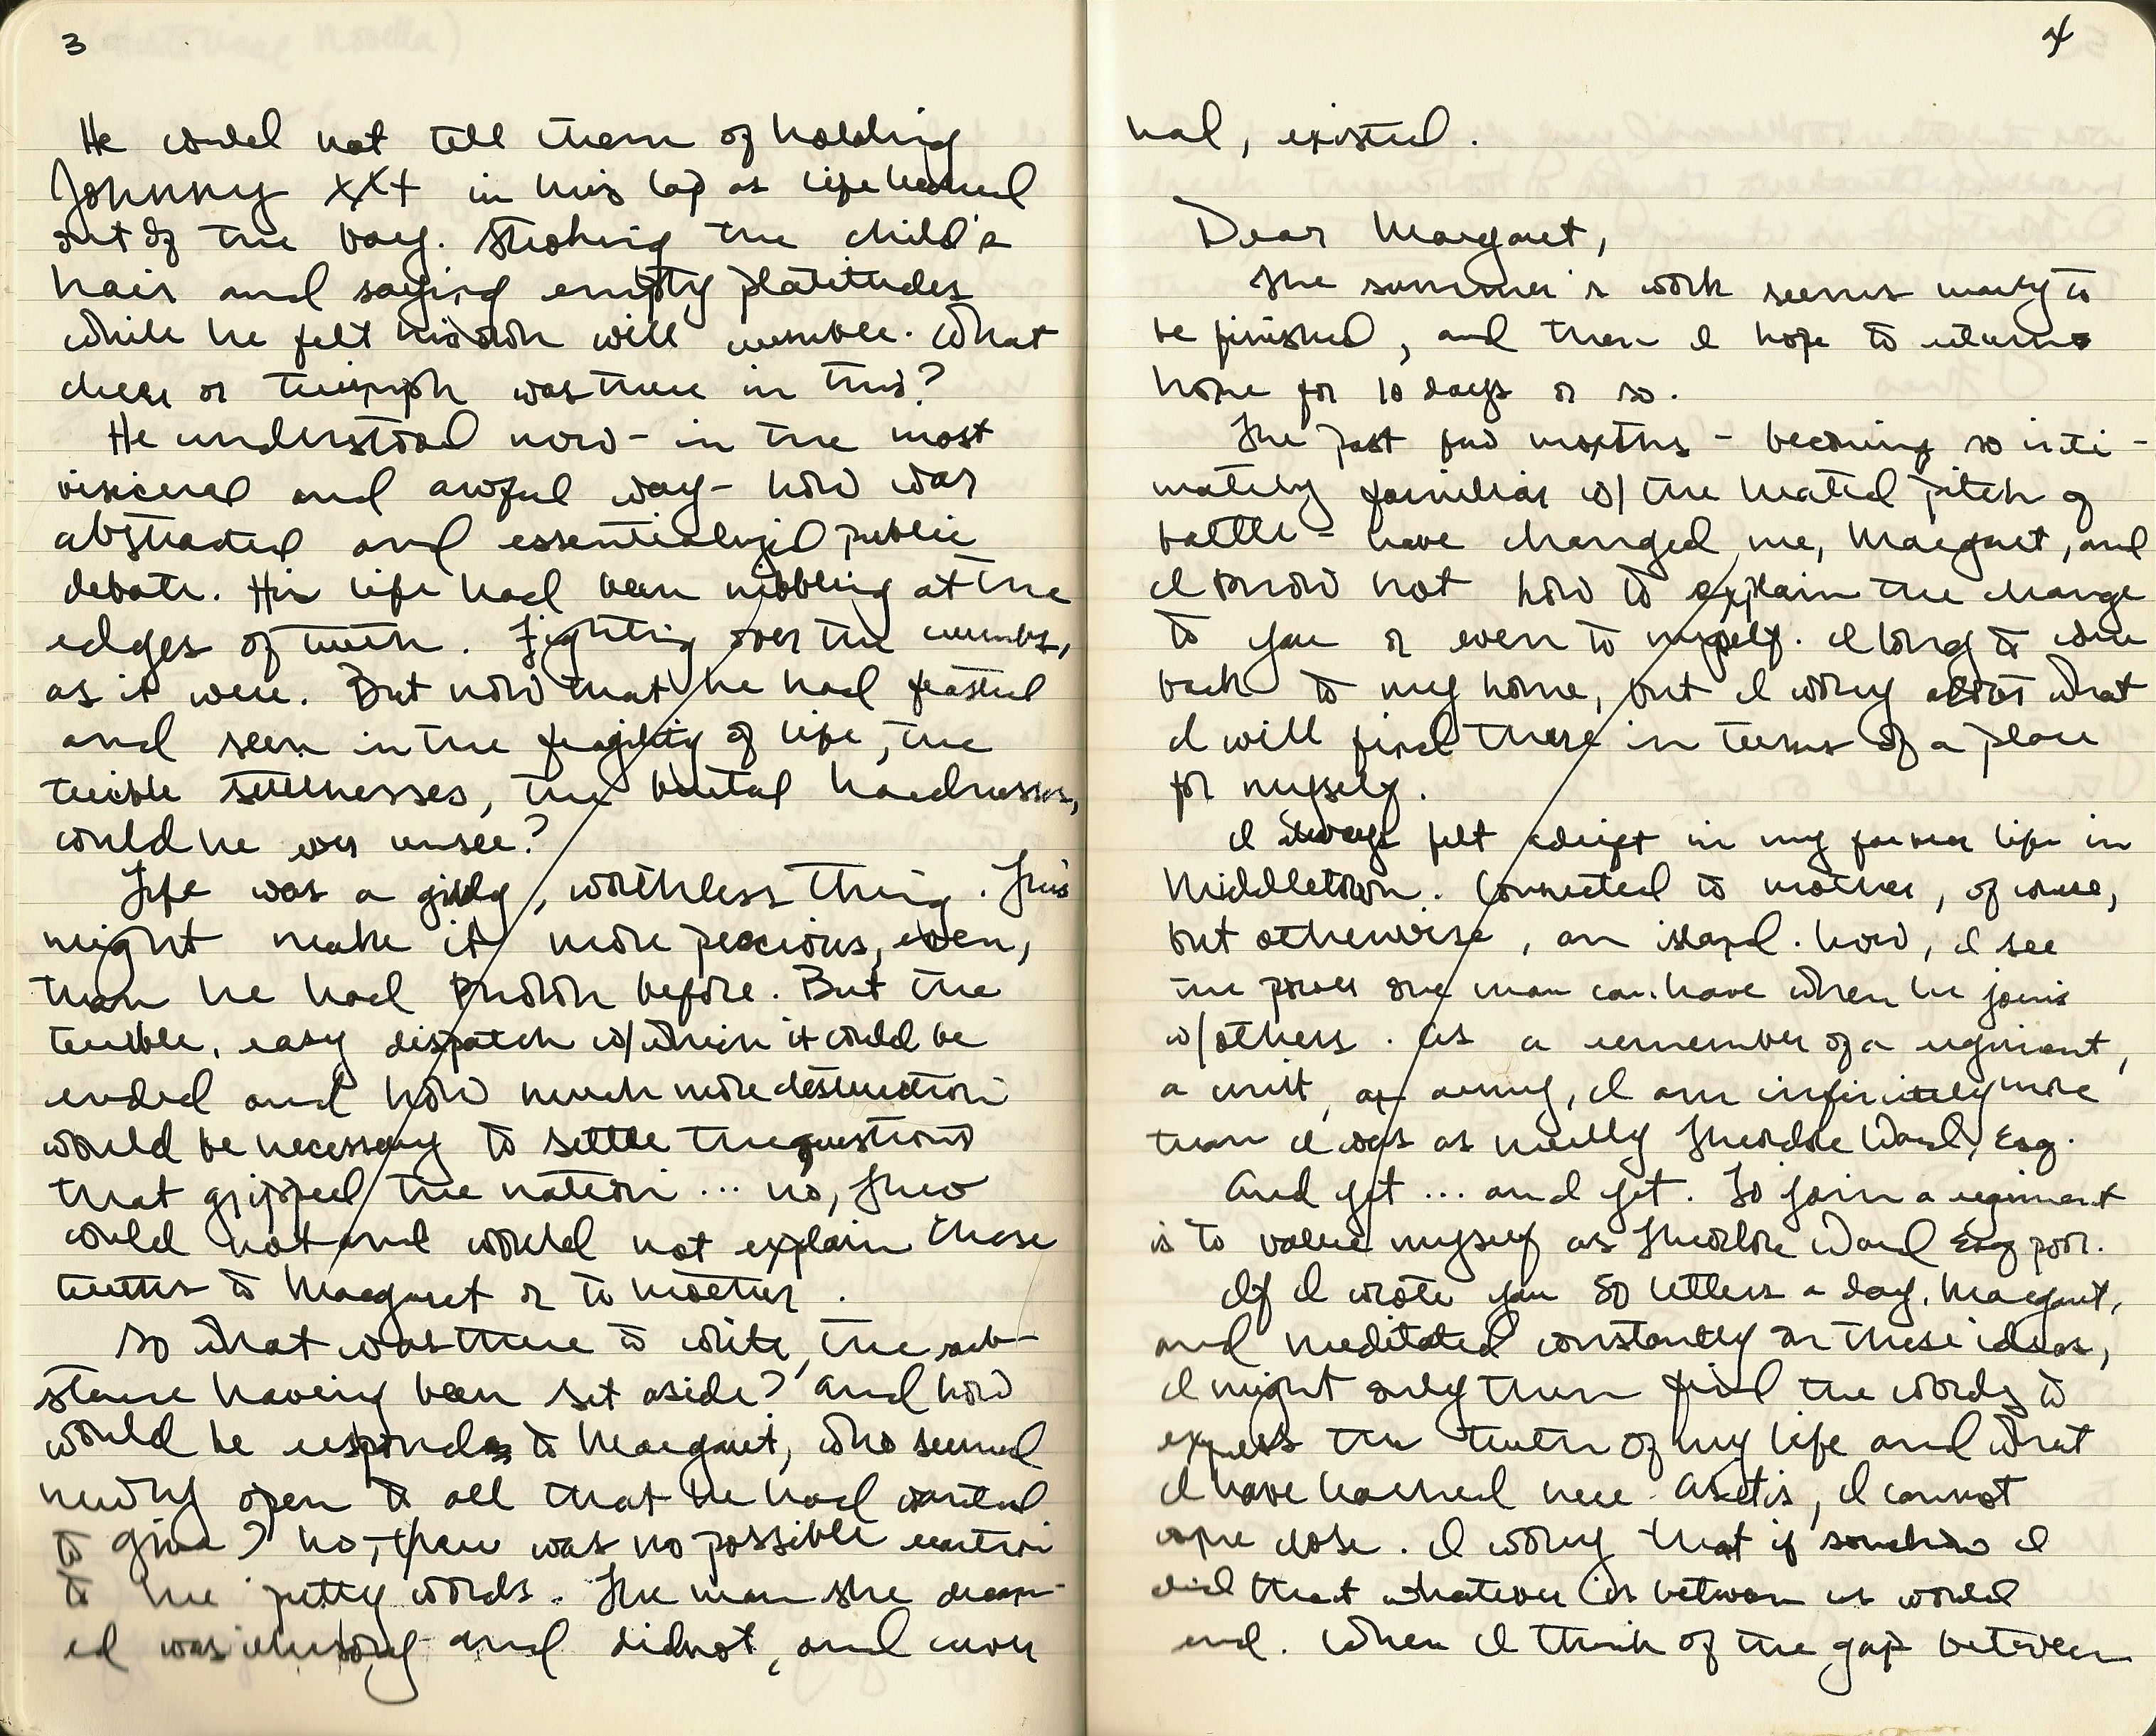 3
He could not tell them of holding
Johnny XXX in his lap as life heaved
out of the boy. Stroking the child's
hair and saying empty platitudes
while he felt his own will crumble. What
cheer or triumph was there in this?
He understood now - in the most
visceral and awful way - how war
abstracted and essentialized public
debate. His life had been nibbling at the
edges of truth. Fighting over the crumbs,
as it were. But now that he had feasted
and seen in the fragility of life, the
terrible stillnesses, the brutal hardnesses,
could he ever unsee?
Life was a giddy, worthless thing. This
might make it more precious, even,
than he had known before. But the
terrible, easy dispatch w/which it could be
ended and how much more destruction
would be necessary to settle the questions
that gripped the nation... no, Theo
could not and would not explain these
truths to Margaret or to mother.
So what was there to write, the sub-
stance having been set aside? And how
would he respond to Margaret, who seemed
newly open to all that he had wanted
to give? No, there was no possible
to her pretty words. The man she dream-
ed was illusory and did not, and never
4
had, existed.
Dear Margaret,
The summer's work seems nearly to
be finished, and then I hope to return
home for 10 days or so.
The past few months - becoming so inti-
mately familiar w/ the heated pitch of
battle - have changed me, Margaret, and
I know not how to explain the change
to you or even to myself. I long to come
back to my home, but I worry about what
I will find there in terms of a place
for myself.
I always felt adrift in my former life in
Middletown. Connected to mother, of course,
but otherwise, an island. Now, I see
the power one man can have when he joins
w/others. As a remember of a regiment,
a unit, an army, I am infinitely more
than I was as merely Theodore Ward, Esq.
And yet... and yet. To join a regiment
is to value myself as Theodore Ward Esq poor.
If I wrote you 50 letters a day, Margaret,
and meditated constantly on these ideas,
I might only then find the words to
express the truth of my life and what
I have learned here. As it is, I cannot
come close. I worry that if somehow I
did that whatever is between us would
end. When I think of the gap between